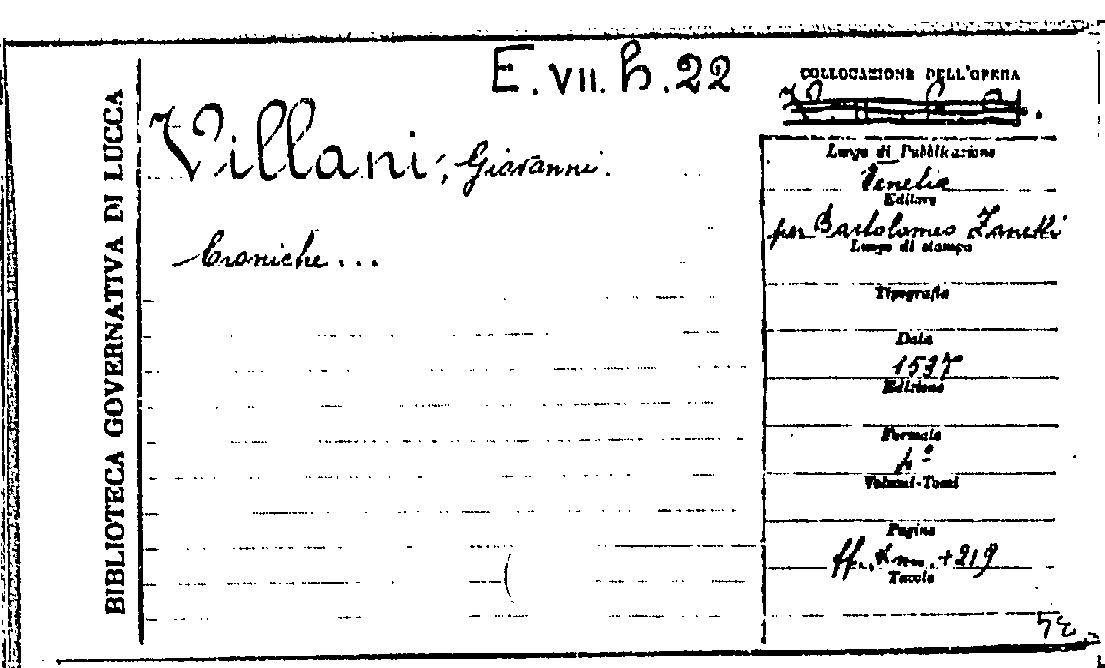 E. VII. h. 22
COLLOCAZIONE DELL'OPERA
BIBLIOTECA GOVERNATIVA DI LUCCA
Villani, Giovanni.
Croniche...
Luogo di Pubblicazione
Venetia
Editore
per Bartolomeo Zanetti
Luogo di stampa
Tipografia
Data
1537
Edizione
Formato
Volumi-Tomi
Pagine
ff. + 219
Tavole